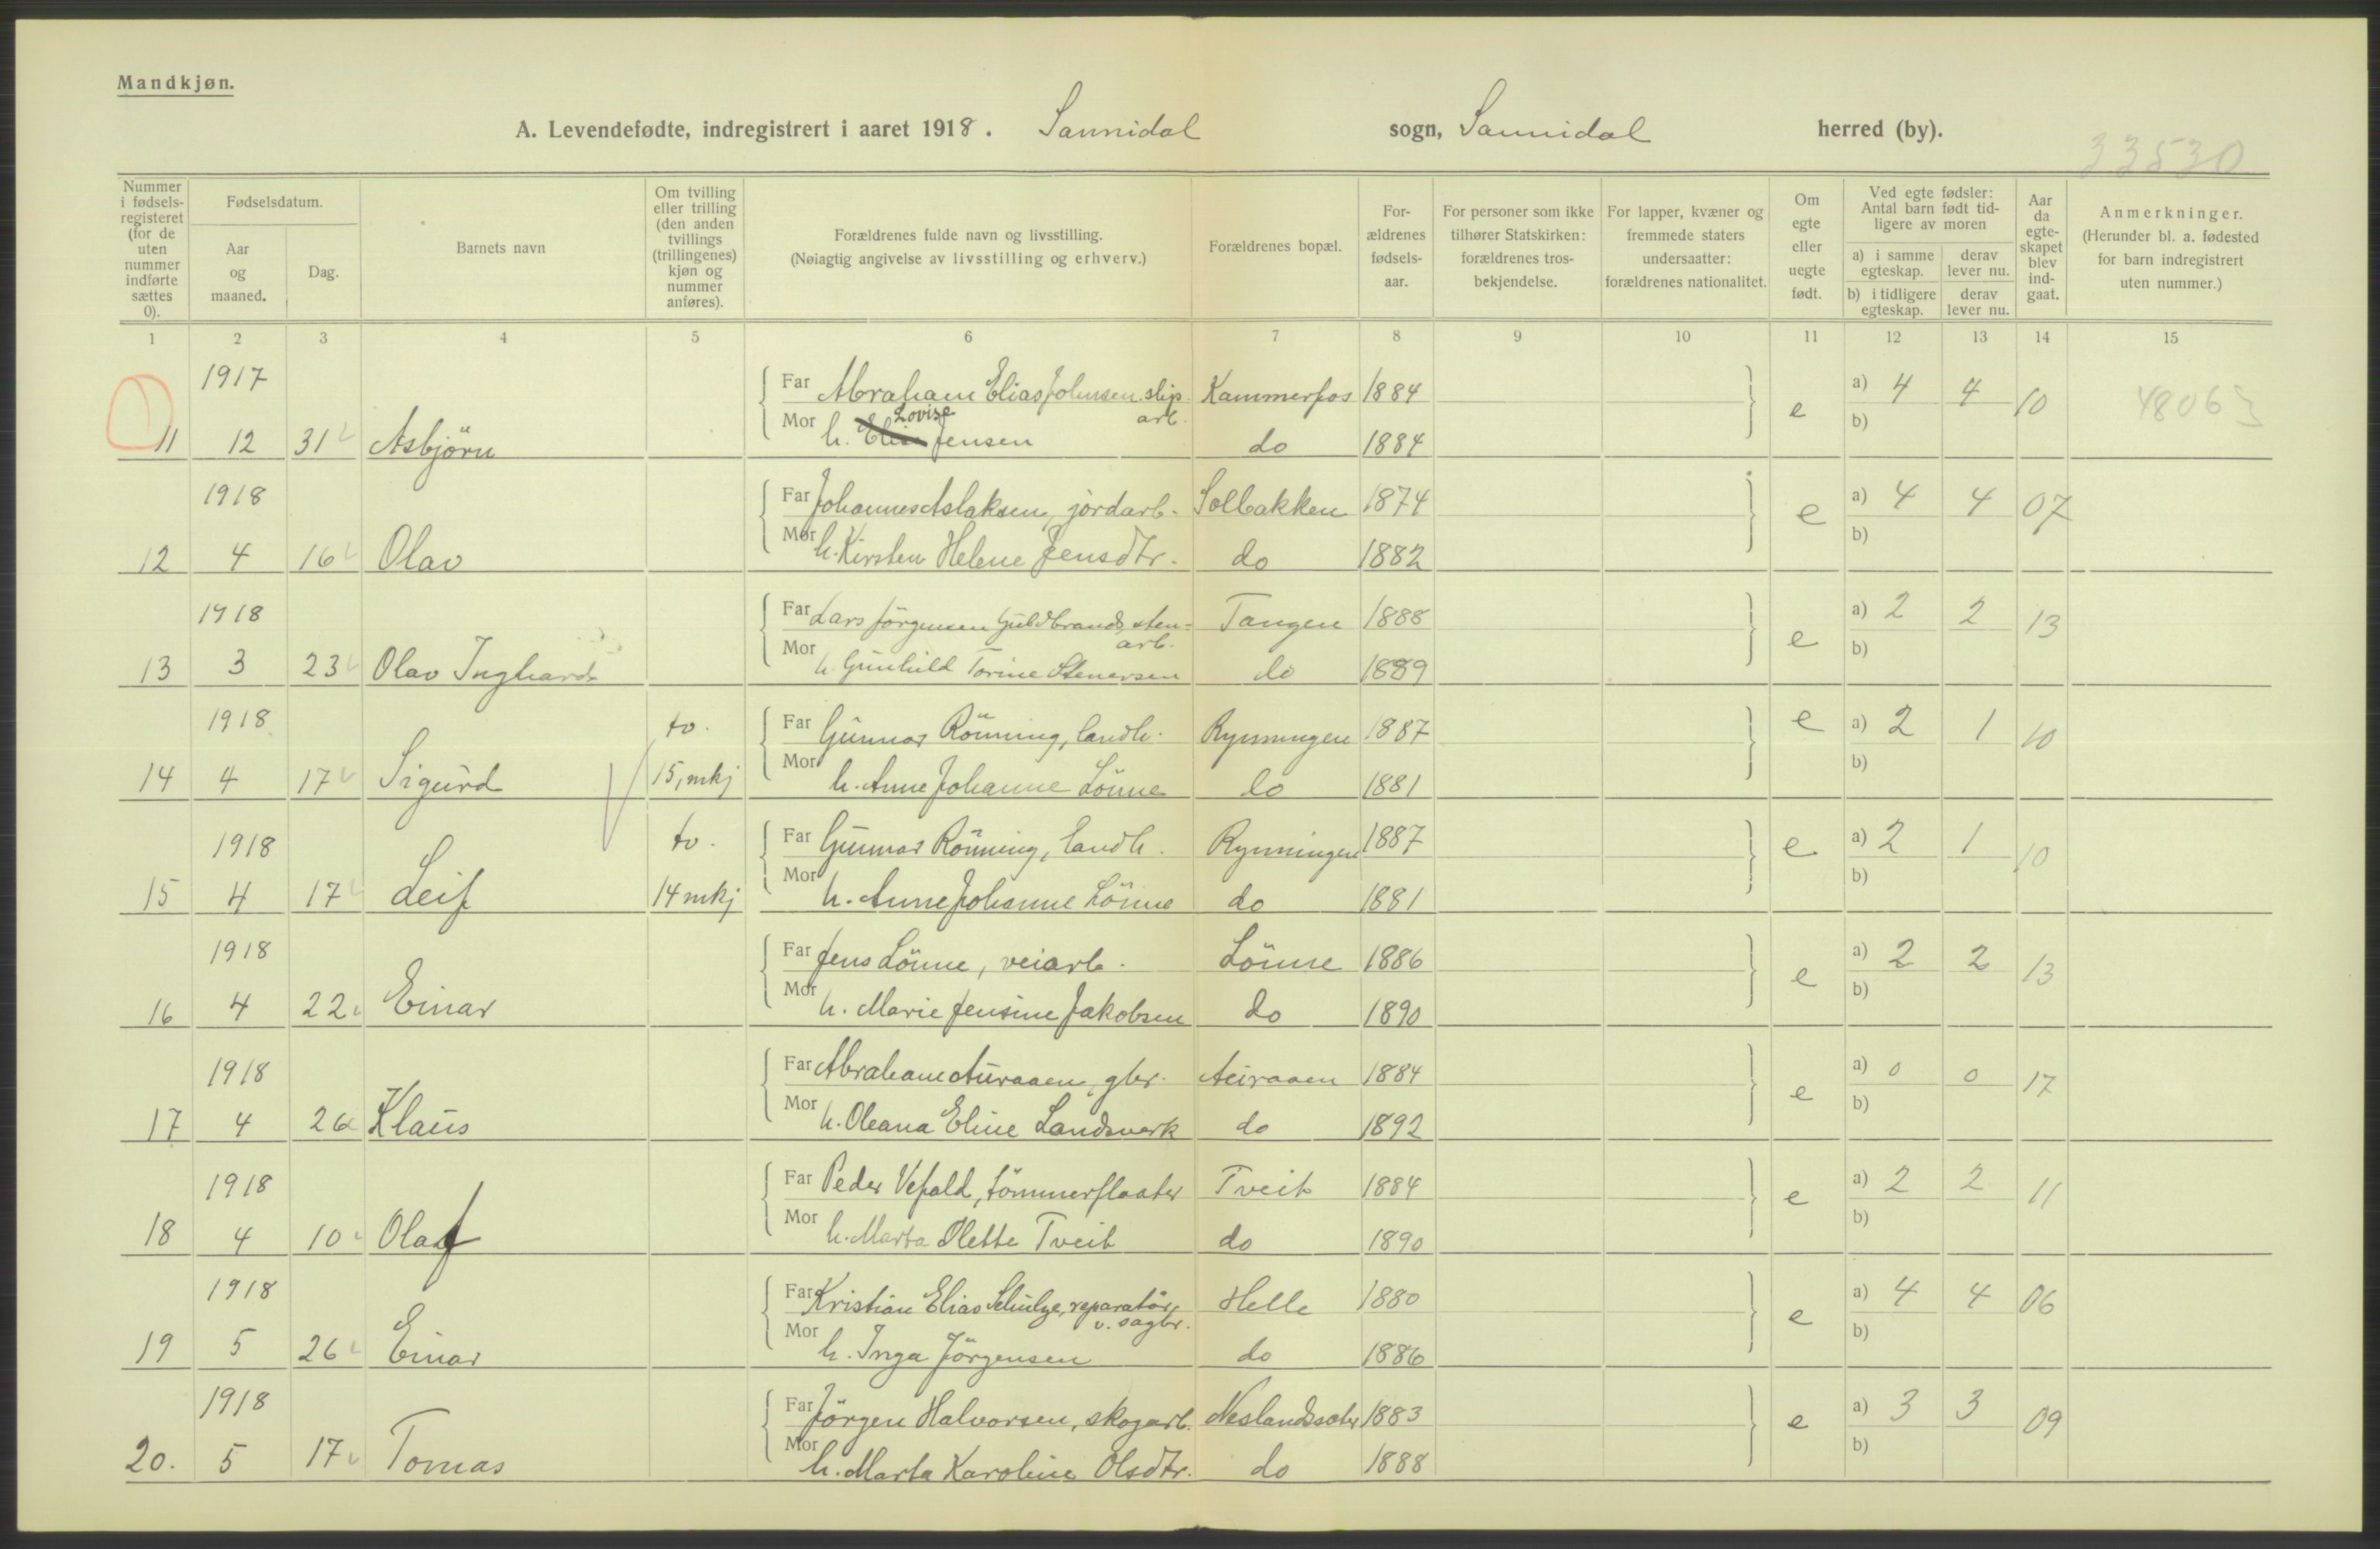 Mandkjøn.
A. Levendefødte, indregistrert i aaret 1918. Sannidal sogn, Sannidal herred (by).
33530
Nummer i fødsels-registeret (for de uten nummer indførte sættes 0).
Fødselsdatum.
Aar og maaned.
Dag.
Barnets navn
Om tvilling eller trilling (den anden tvillings (trillingenes) kjøn og nummer anføres).
Forældrenes fulde navn og livsstilling.
(Nøiagtig angivelse av livsstilling og erhverv.)
Forældrenes bopæl.
For-ældrenes fødsels-aar.
For personer som ikke tilhører Statskirken: forældrenes tros-bekjendelse.
For lapper, kvæner og fremmede staters undersaatter: forældrenes nationalitet.
Om egte eller uegte født.
Ved egte fødsler: Antal barn født tid-ligere av moren
a) i samme egteskap. derav lever nu.
b) i tidligere egteskap. derav lever nu.
Aar da egte-skapet blev ind-gaat.
Anmerkninger.
(Herunder bl. a. fødested for barn indregistrert uten nummer.)
1 2 3 4 5 6 7 8 9 10 11 12 13 14 15
1917 Far Abraham Elias Johnsen slip. arb. Kammerfos 1884 e a) 4 4 10 48063
11 12 31 Asbjörn Mor h. Lovise Jensen do 1884 b)
1918 Far Johannes Aslaksen, jordarb. Solbakken 1874 e a) 4 4 07
12 4 16 Olav Mor h. Kirsten Helene Jensdtr. do 1882 b)
1918 Far Lars Jörgensen Guldbrands, sten-arb. Tangen 1888 e a) 2 2 13
13 3 23 Olav Inghard Mor h. Gunhild Torine Stenersen do 1889 b)
1918 tv. Far Gunnar Rönning, landh. Rynningen 1887 e a) 2 1 10
14 4 17 Sigurd 15, mkj Mor h. Anne Johanne Lönne do 1881 b)
1918 tv. Far Gunnar Rönning, landh. Rynningen 1887 e a) 2 1 10
15 4 17 Leif 14 mkj Mor h. Anne Johanne Lönne do 1881 b)
1918 Far Jens Lönne, veiarb. Lönne 1886 e a) 2 2 13
16 4 22 Einar Mor h. Marie Jensine Jakobsen do 1890 b)
1918 Far Abraham Auraaen, gbr. 1884 e a) 0 0 17
17 4 26 Klaus Mor h. Oleana Eline Landsverk do 1892 b)
1918 Far Peder Vefald, tömmerfløater Tveit 1884 e a) 2 2 11
18 4 10 Olaf Mor h. Marta Olette Tveit do 1890 b)
1918 Far Kristian Elias Schulze, reparatör v. sagbr. Helle 1880 e a) 4 4 06
19 5 26 Einar Mor h. Inga Jörgensen do 1886 b)
1918 Far Jörgen Halvorsen, skogarb. Neslandssæter 1883 e a) 3 3 09
20. 5 17 Tomas Mor h. Marta Karoline Olsdtr. do 1888 b)